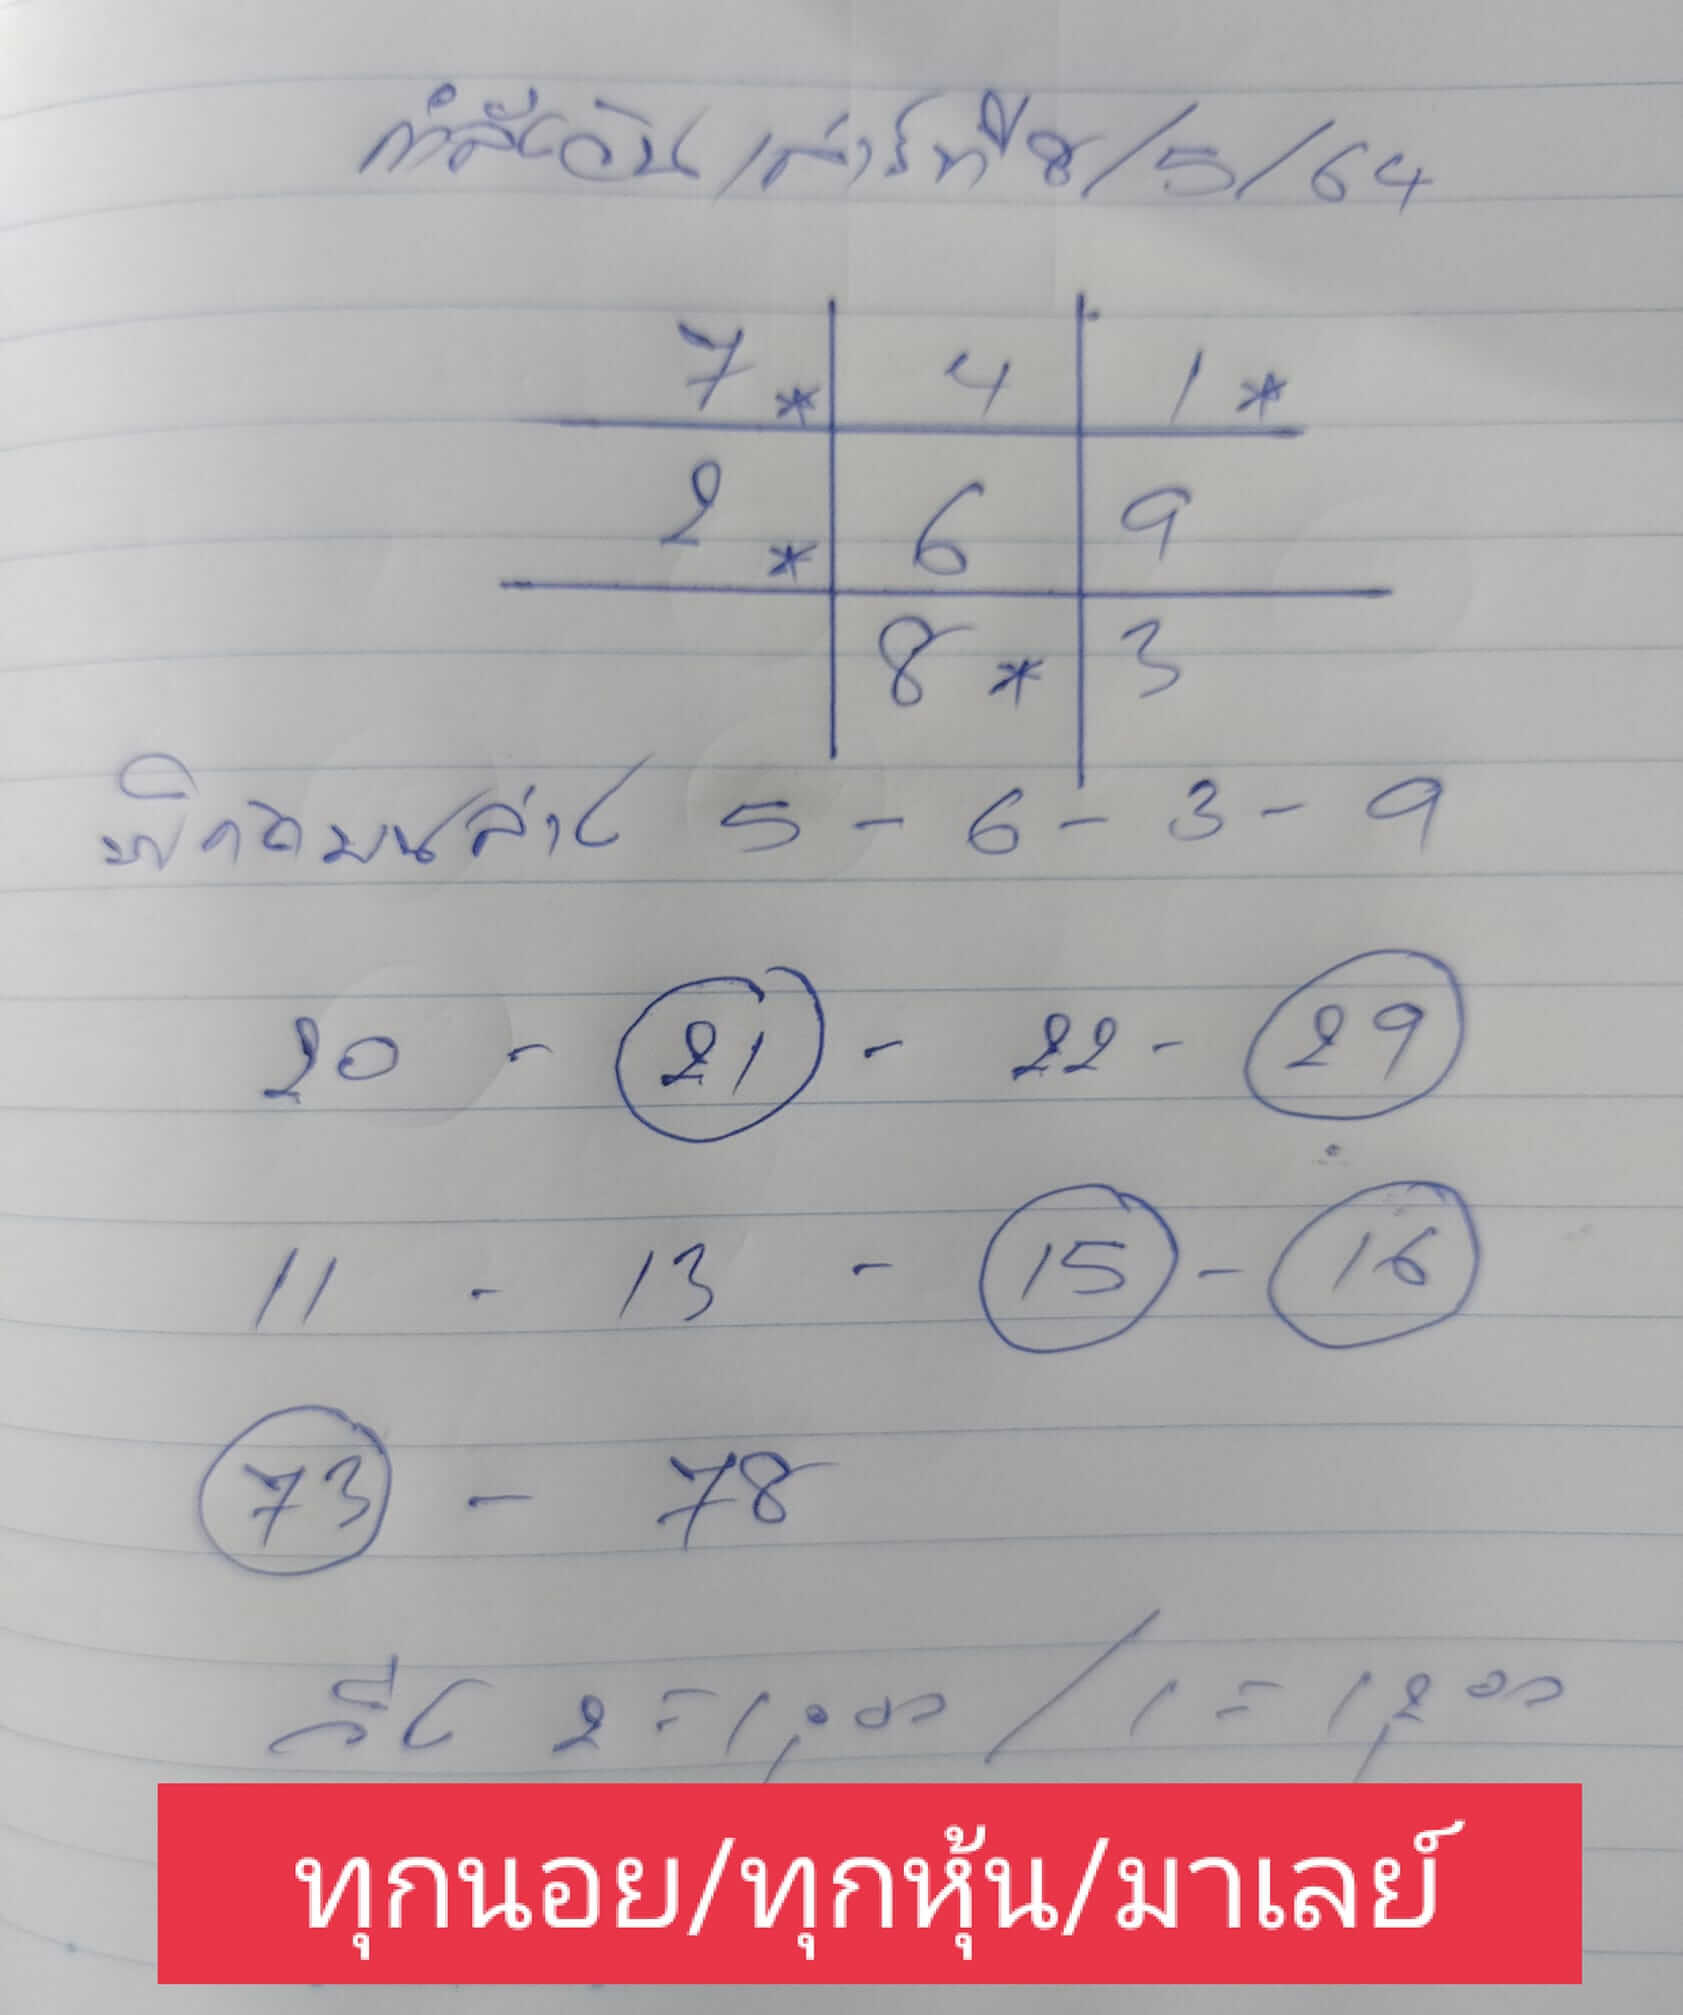 กำลังวันเสาร์ที่ 8/5/64
7* 4 1*
2* 6 9
8* 3
พิกัดบนล่าง 5 - 6 - 3 - 9
20 - 21 - 22 - 29
11 - 13 - 15 - 16
73 - 78
2 = 1,000 / 1 = 1,200
ทุกนอย/ทุกหุ้น/มาเลย์